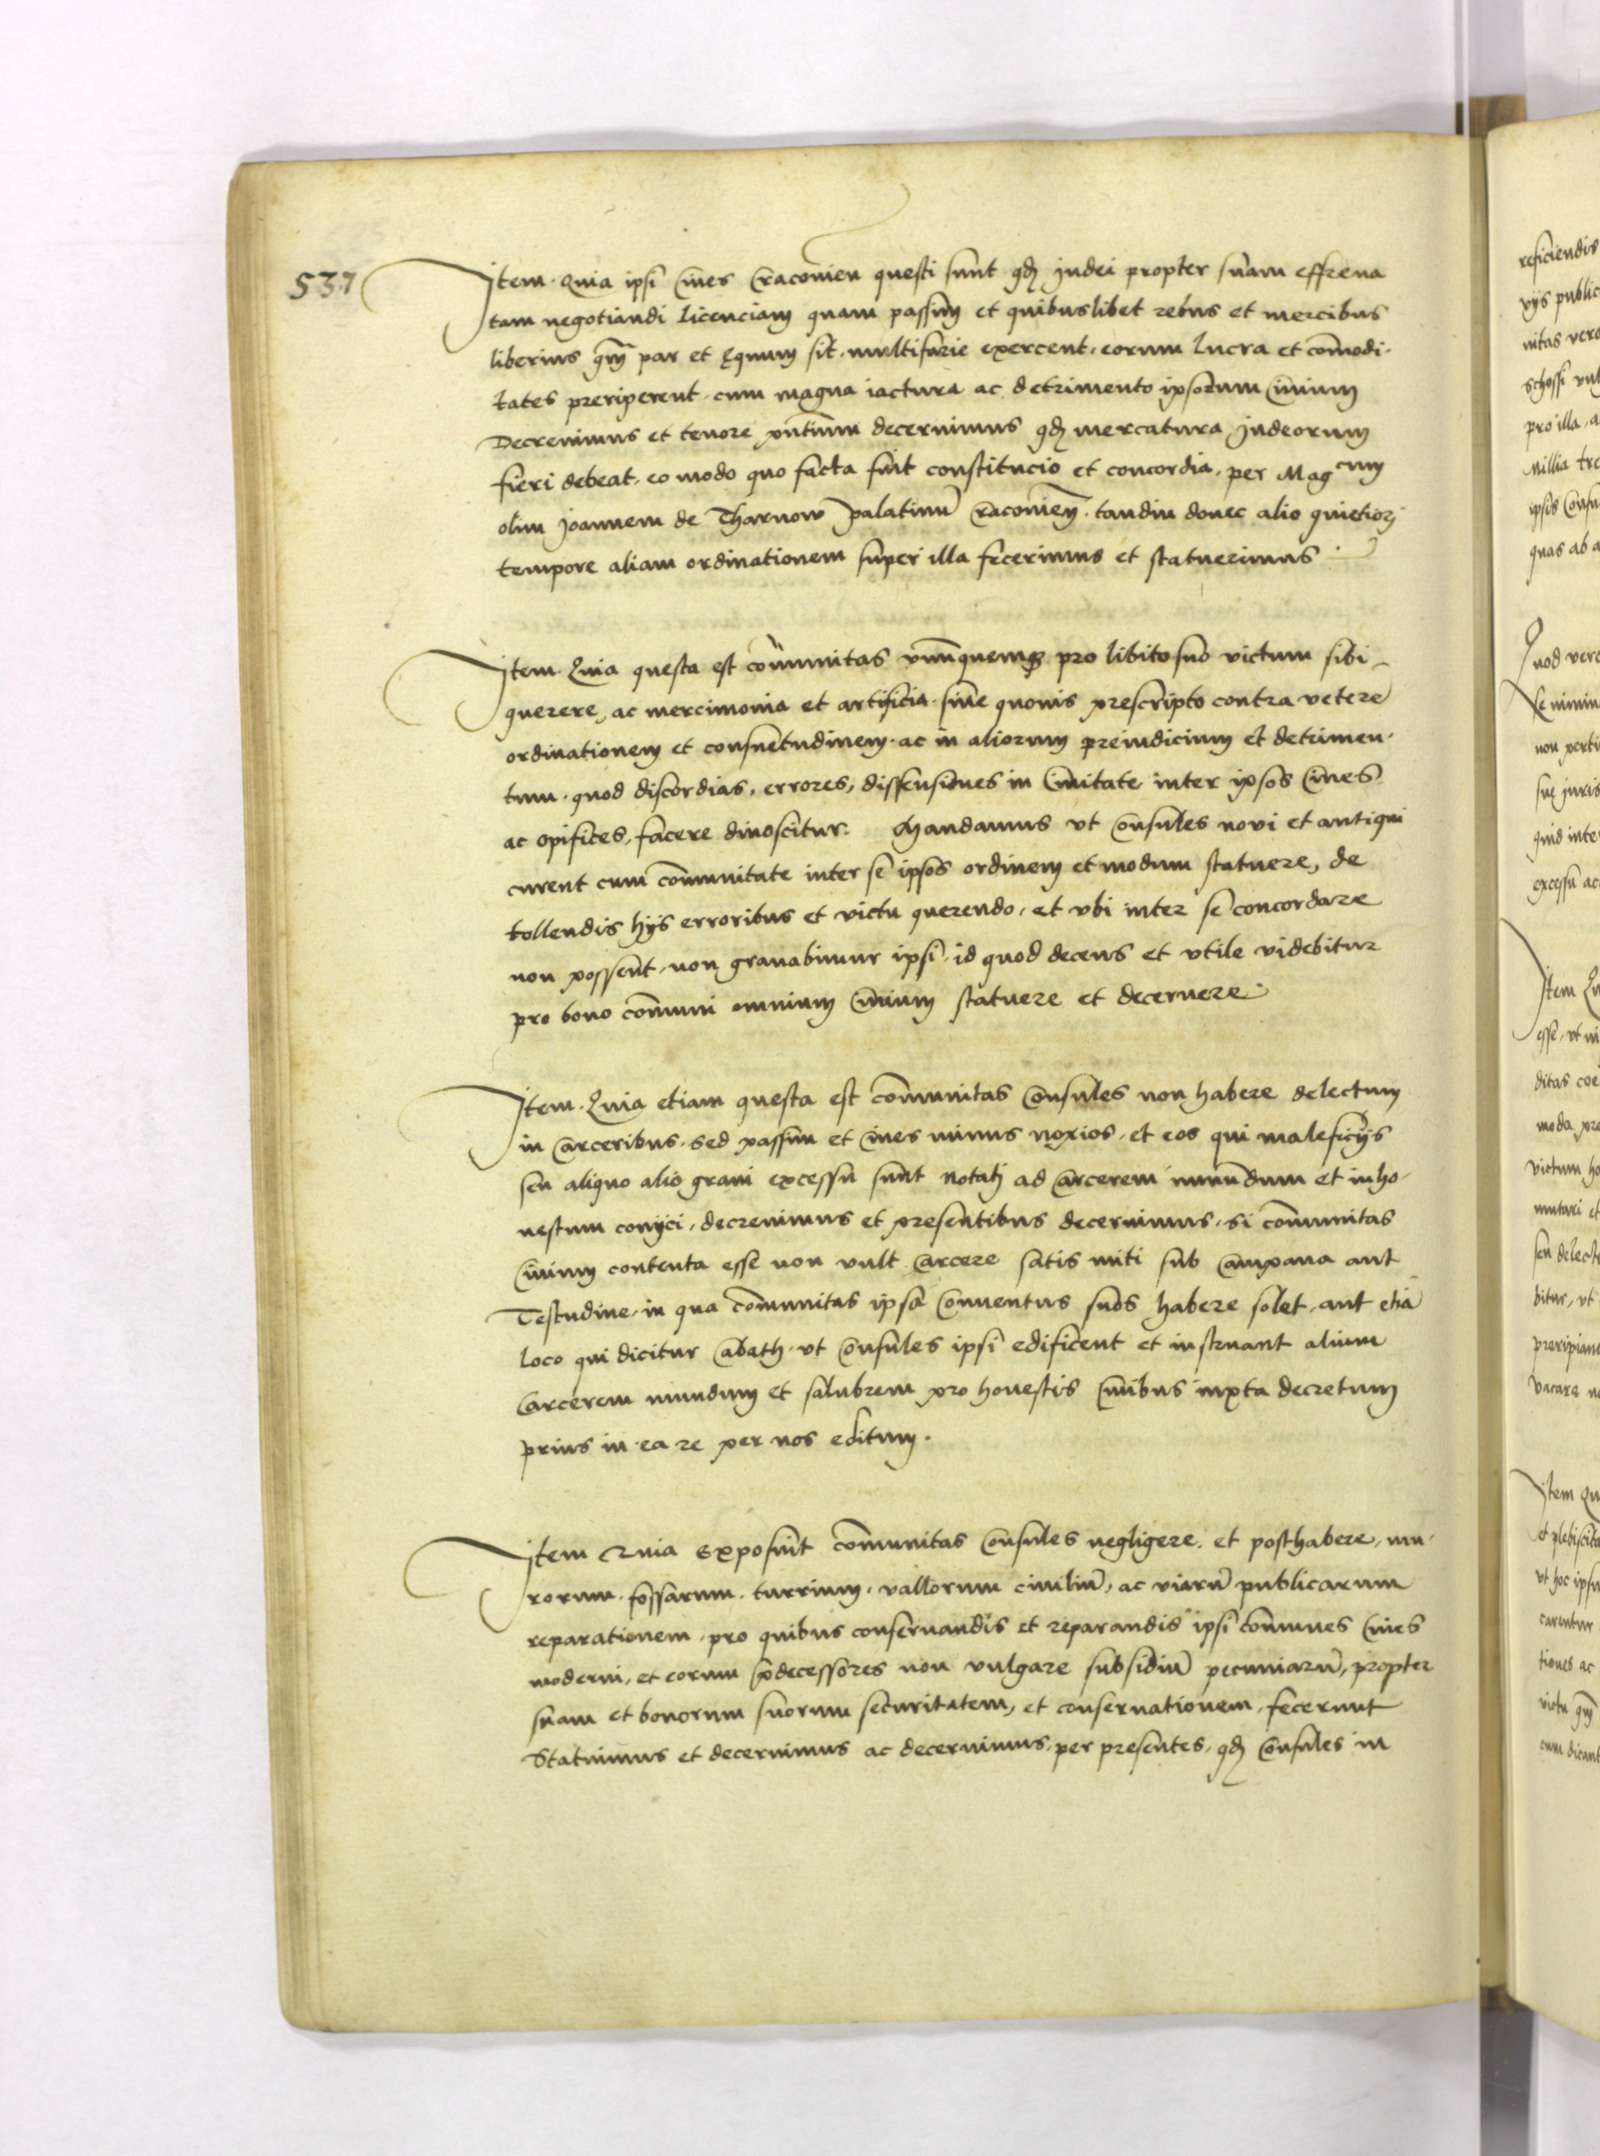 537
Item. Quia ipsi Ciues Cracouien questi sunt qđ Judei propter suam effrena
tam negotiandi licenciam quam passim et quibuslibet rebus et mercibus
liberius qm̃ par et equum sit, multifarie exercent, eorum lucra et com̃odi-
tates preriperent, cum magna iactura ac detrimento ipsorum Ciuium
Decreuimus et tenore pn̄tium decernimus qđ mercatura Judeorum
fieri debeat, eo modo quo facta fuit constitucio et concordia, per Magcum
olim Joannem de Tharnow palatinū Cracouieñ. tandiu donec alio quietiorj
tempore aliam ordinationem super illa fecerimus et statuerimus
Item. Quia questa est com̃unitas vnũquemq3 pro libito suo victum sibi
querere, ac mercimonia et artificia sine quouis prescripto contra veterē
ordinationem et consuetudinem, ac in aliorum preiudicium et detrimen-
tum, quod discordias, errores, dissensiones in Ciuitate inter ipsos Ciues
ac opifices, facere dinoscitur. Mandamus vt Consules novi et antiqui
curent cum com̃unitate inter se ipsos ordinem et modum statuere, de
tollendis hÿs erroribus et victu querendo, et vbi inter se concordare
non possent, non grauabimur ipsi, id quod decens et vtile videbitur
pro bono com̃uni omnium Ciuium statuere et decernere.
Item. Quia etiam questa est com̃unitas Consules non habere delectum
in Carceribus, sed passim et Ciues minus noxios, et eos qui maleficÿs
seu aliquo alio graui excessu sunt notatj ad Carcerem inmundum et inho-
nestum conÿci, decreuimus et presentibus decernimus, si com̃unitas
Ciuium contenta esse non vult Carcere satis miti sub Campana aut
Testudine, in qua com̃unitas ipsa Conuentus suos habere solet, aut etiā
loco qui dicitur Cabath, vt Consules ipsi edificent et instruant alium
Carcerem mundum et salubrem pro honestis Ciuibus iuxta decretum
prius in ea re per nos editum.
Item Quia Exposuit com̃unitas Consules negligere, et posthabere, mu-
rorum, fossarum, turrium, vallorum ciuiliū, ac viarū publicarum
reparationem, pro quibus conseruandis et reparandis ipsi com̃unes Ciues
moderni, et eorum p̄decessores non vulgare subsidiū pecuniarū, propter
suam et bonorum suorum securitatem, et conseruationem, fecerunt
Statuimus et decernimus ac decernimus, per presentes, qđ Consules in
reficiendis
vÿs public
nitas vero
schossi
pro illa, a
Millia tre
ipsis Consu
quas ab a
Quod vero
non perti
sue juris
quid inter
excessu ac
Item Qu
esse, vt
ditas
moda, pre
victum ho
mutari et
seu delect
ditur, vt
preripiant
vacare
Item Qu
et plebiscita
vt hoc ipsu
carentur
tiones ac
victu qm̃
cum dicant